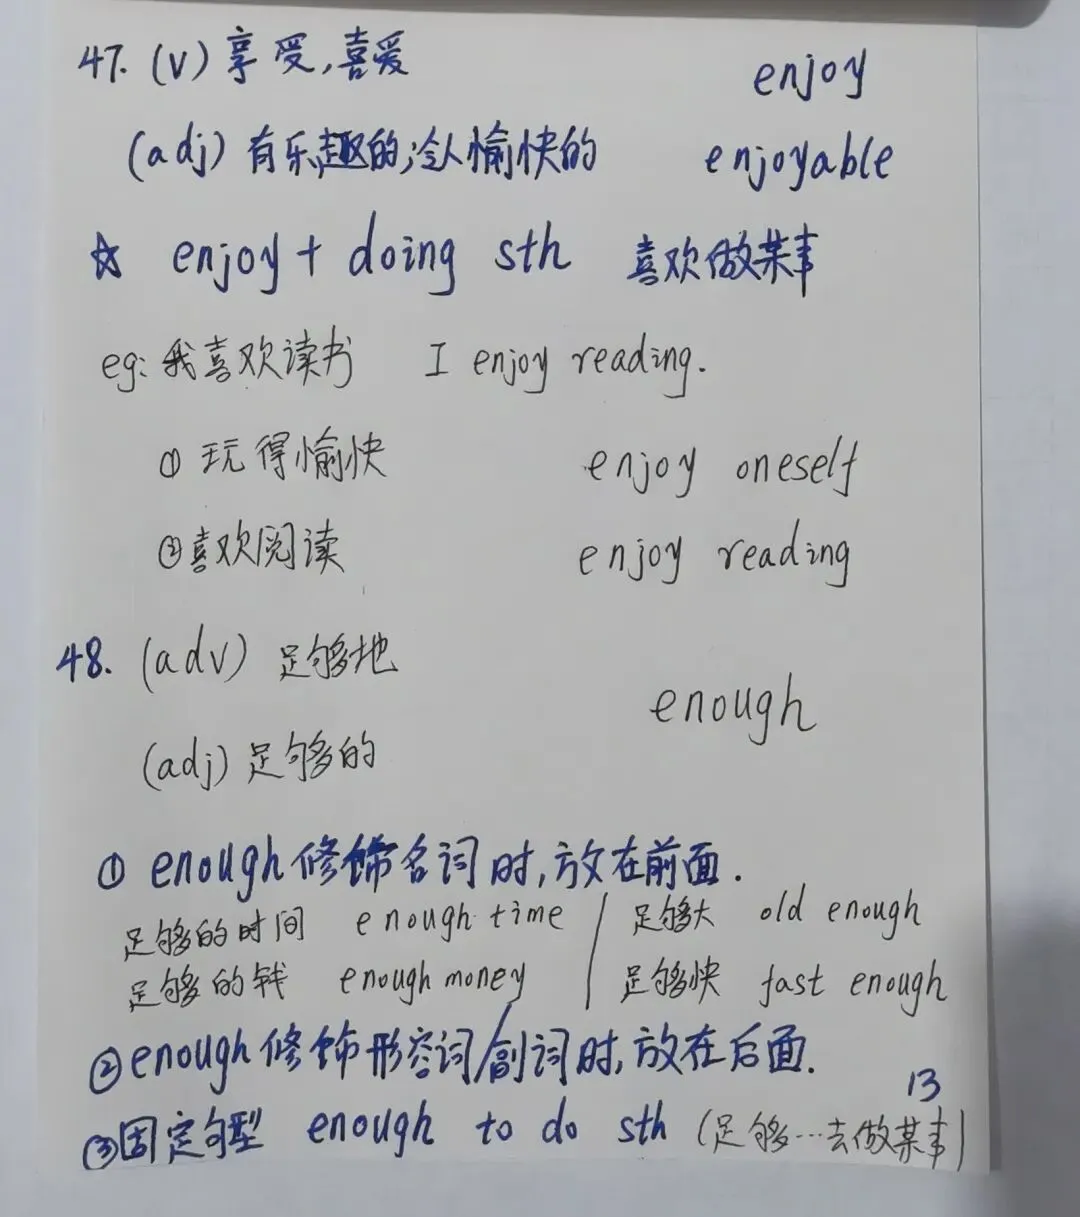 47. (v) 享受,喜爱 enjoy
(adj) 有乐趣的;令人愉快的 enjoyable
☆ enjoy + doing sth 喜欢做某事
eg: 我喜欢读书 I enjoy reading.
① 玩得愉快 enjoy oneself
②喜欢阅读 enjoy reading
48. (adv) 足够地
enough
(adj) 足够的
① enough修饰名词时,放在前面.
足够的时间 enough time / 足够大 old enough
足够的钱 enough money / 足够快 fast enough
②enough修饰形容词/副词时,放在后面.
13
③固定句型 enough to do sth (足够…去做某事)